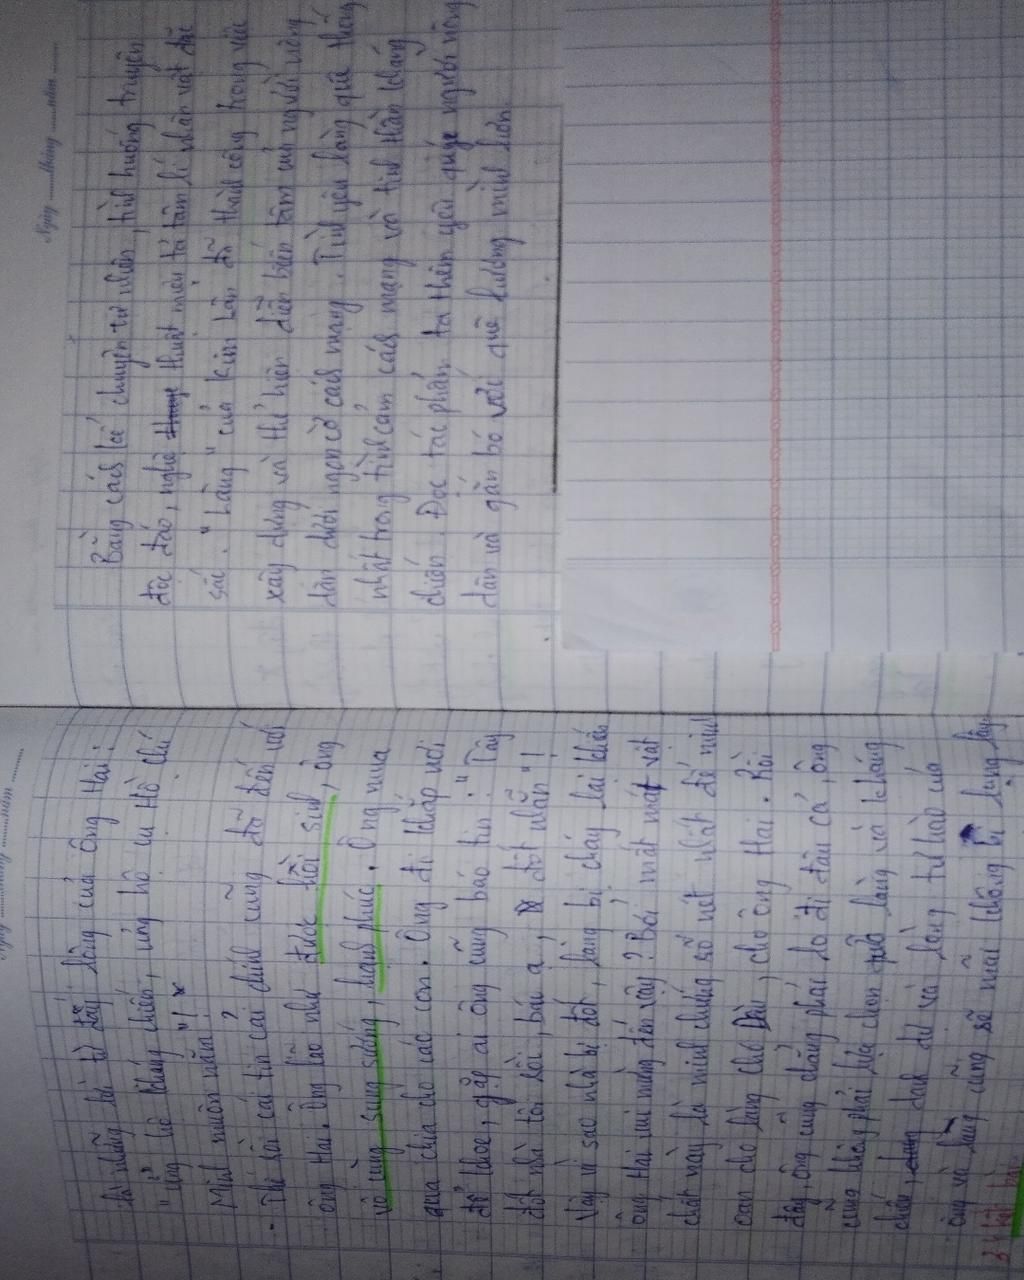 tháng năm
là những lời từ đáy lòng của ông Hai:
"ủng hộ kháng chiến, ủng hộ cụ Hồ Chí
Minh muôn năm"!
Thế rồi cái tin cải chính cũng đã đến với
ông Hai. Ông lão như được hồi sinh, ông
vô cùng sung sướng, hạnh phúc. Ông mua
quà chia cho các con. Ông đi khắp nơi
để khoe, gặp ai ông cũng báo tin: "Tây
đốt nhà tôi rồi, bác ạ, đốt nhẵn"!
Vậy vì sao nhà bị đốt, làng bị cháy lại khiến
ông Hai vui mừng đến vậy? Bởi mất mát vật
chất này là minh chứng rõ nét nhất để minh
oan cho làng chợ Dầu, cho ông Hai. Rồi
đây, ông cũng chẳng phải lo đi đâu cả, ông
cũng không phải lựa chọn làng và kháng
chiến, danh dự và lòng tự hào của
ông và làng cũng sẽ mãi không bị lung lay.
3, kết bài:
Ngày tháng năm
Bằng cách kể chuyện tự nhiên, tình huống truyện
độc đáo, nghệ thuật miêu tả tâm lí nhân vật đặc
sắc. "Làng" của Kim Lân đã thành công trong việc
xây dựng và thể hiện diễn biến tâm của người nông
dân dưới ngọn cờ cách mạng. Tình yêu làng quê thống
nhất trong tình cảm cách mạng và tinh thần kháng
chiến. Đọc tác phẩm, ta thêm yêu quý người nông
dân và gắn bó với quê hương mình hơn.